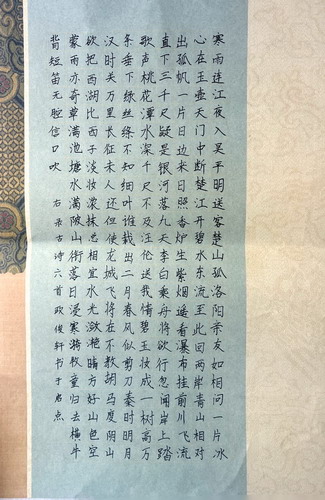 寒雨连江夜入吴平明送客楚山孤洛阳亲友如相问一片冰
心在玉壶天门中断楚江开碧水东流至此回两岸青山相对
出孤帆一片日边来日照香炉生紫烟遥看瀑布挂前川飞流
直下三千尺疑是银河落九天李白乘舟将欲行忽闻岸上踏
歌声桃花潭水深千尺不及汪伦送我情碧玉妆成一树高万
条垂下绿丝绦不知细叶谁裁出二月春风似剪刀秦时明月
汉时关万里长征未人还但使龙城飞将在不教胡马度阴山
欲把西湖比西子淡妆浓抹总相宜水光潋滟晴方好山色空
蒙雨亦奇草满池塘水满陂山衔落日浸寒漪牧童归去横牛
背短笛无腔信口吹 右录古诗六首欧俊轩书于启点